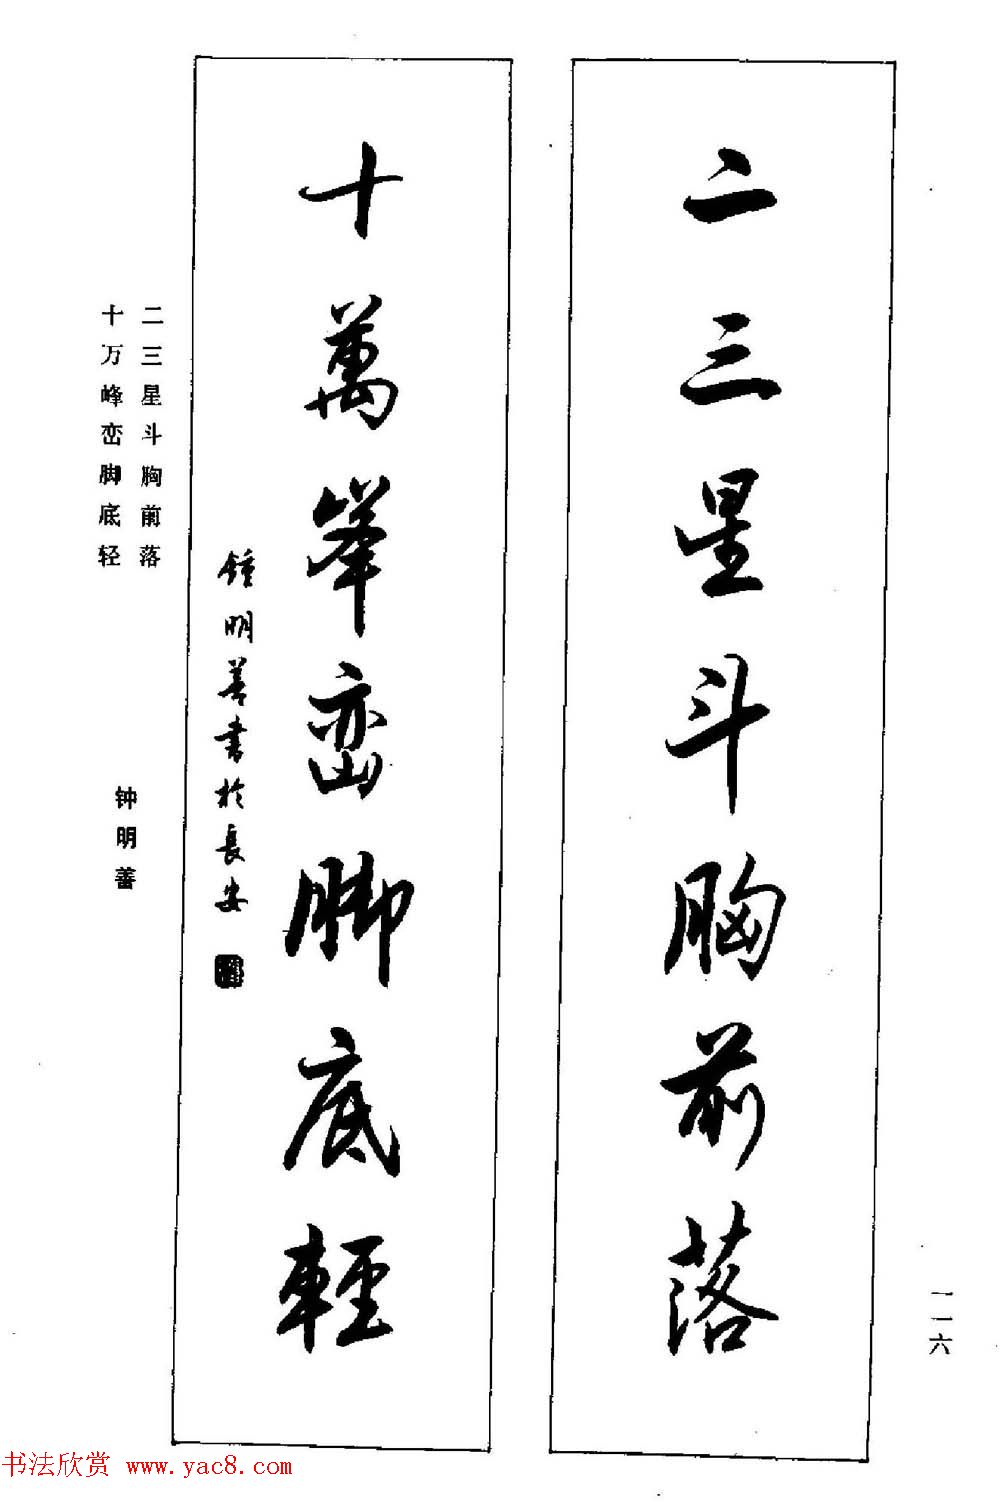 二三星斗胸前落
十萬峯峦脚底輕
鍾明善書於長安
二三星斗胸前落
十万峰峦脚底轻
钟明善
一一六
书法欣赏 www.yac8.com